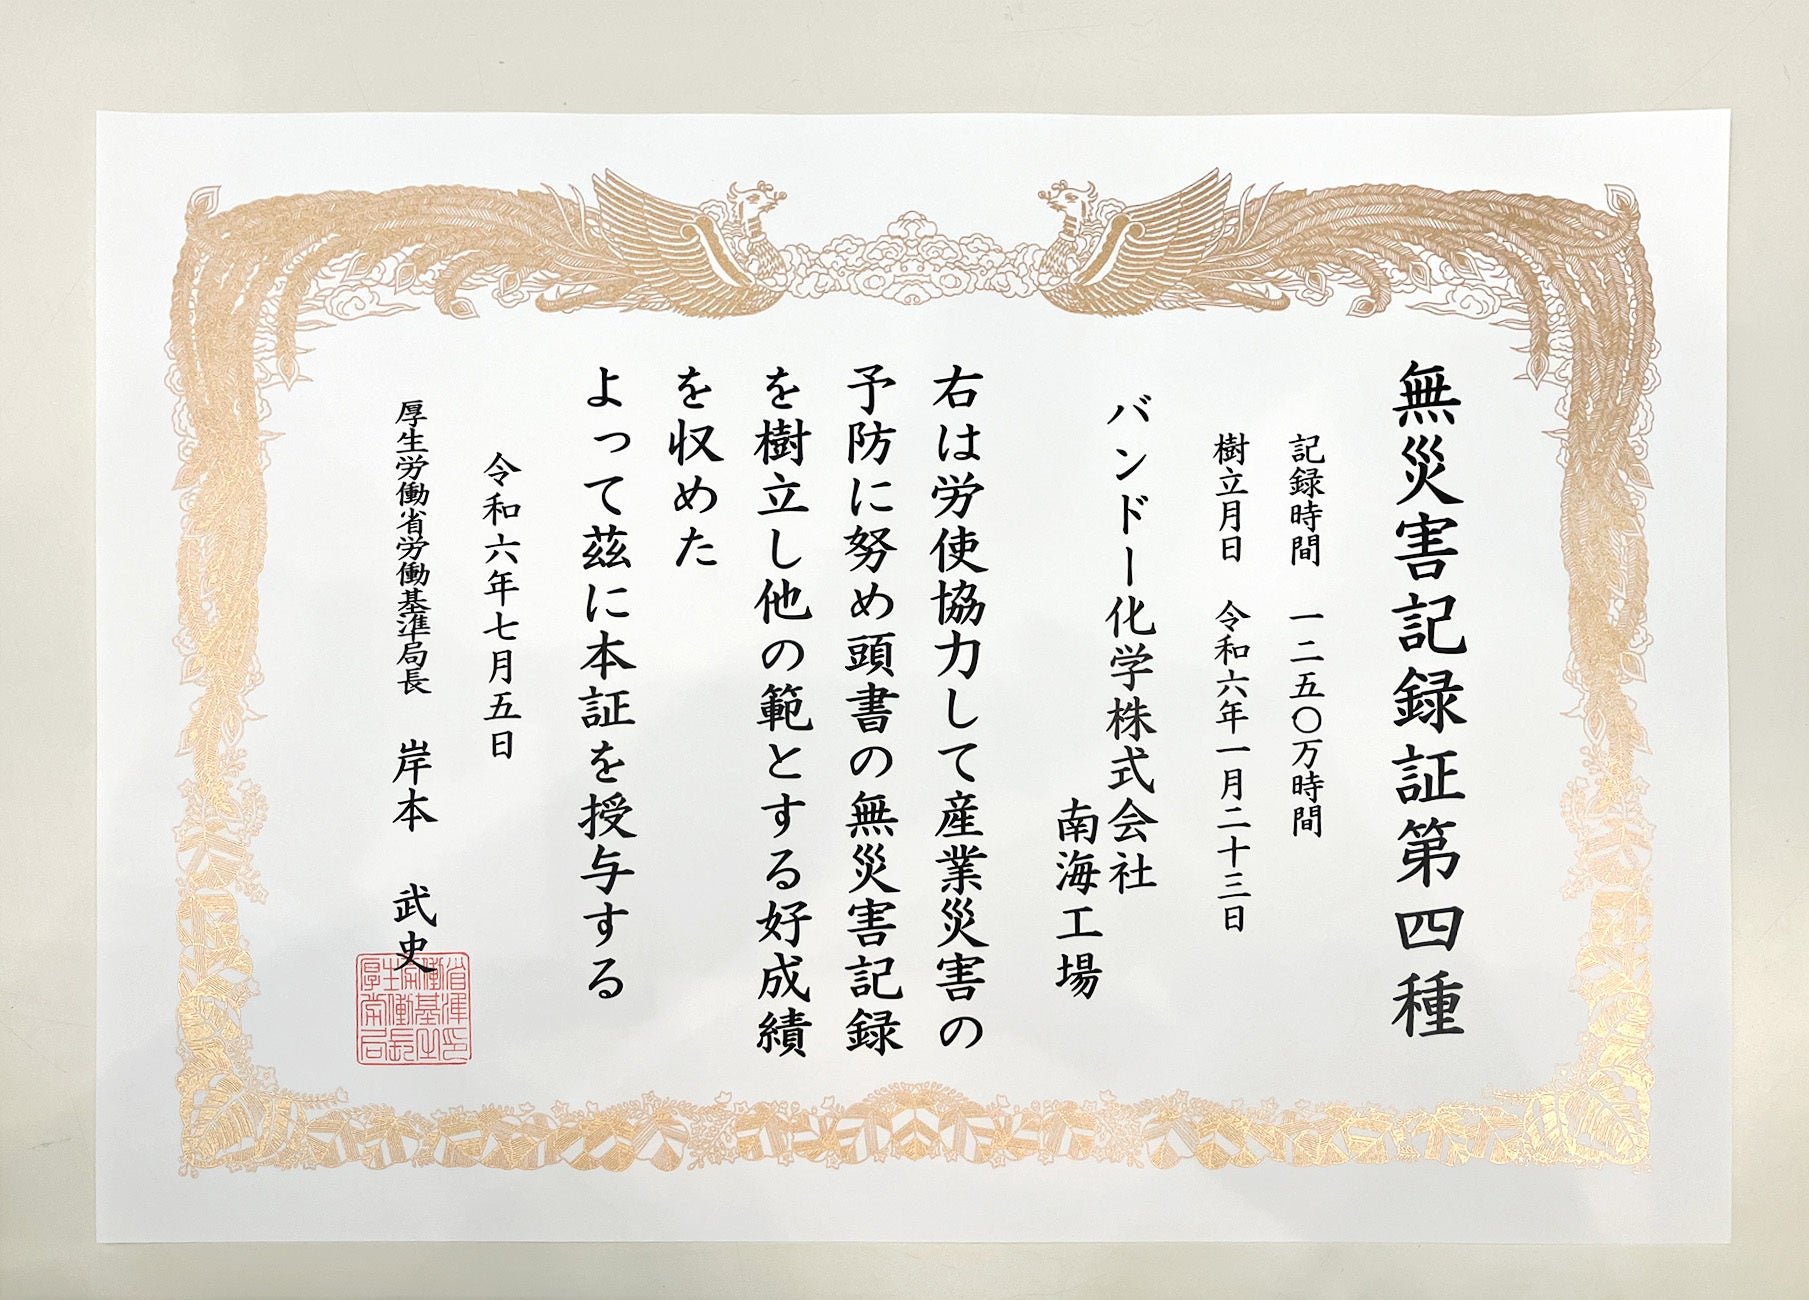 無災害記録証第四種
記録時間　一二五〇万時間
樹立月日　令和六年一月二十三日
バンドー化学株式会社
南海工場
右は労使協力して産業災害の
予防に努め頭書の無災害記録
を樹立し他の範とする好成績
を収めた
よって茲に本証を授与する
令和六年七月五日
厚生労働省労働基準局長　岸本　武史